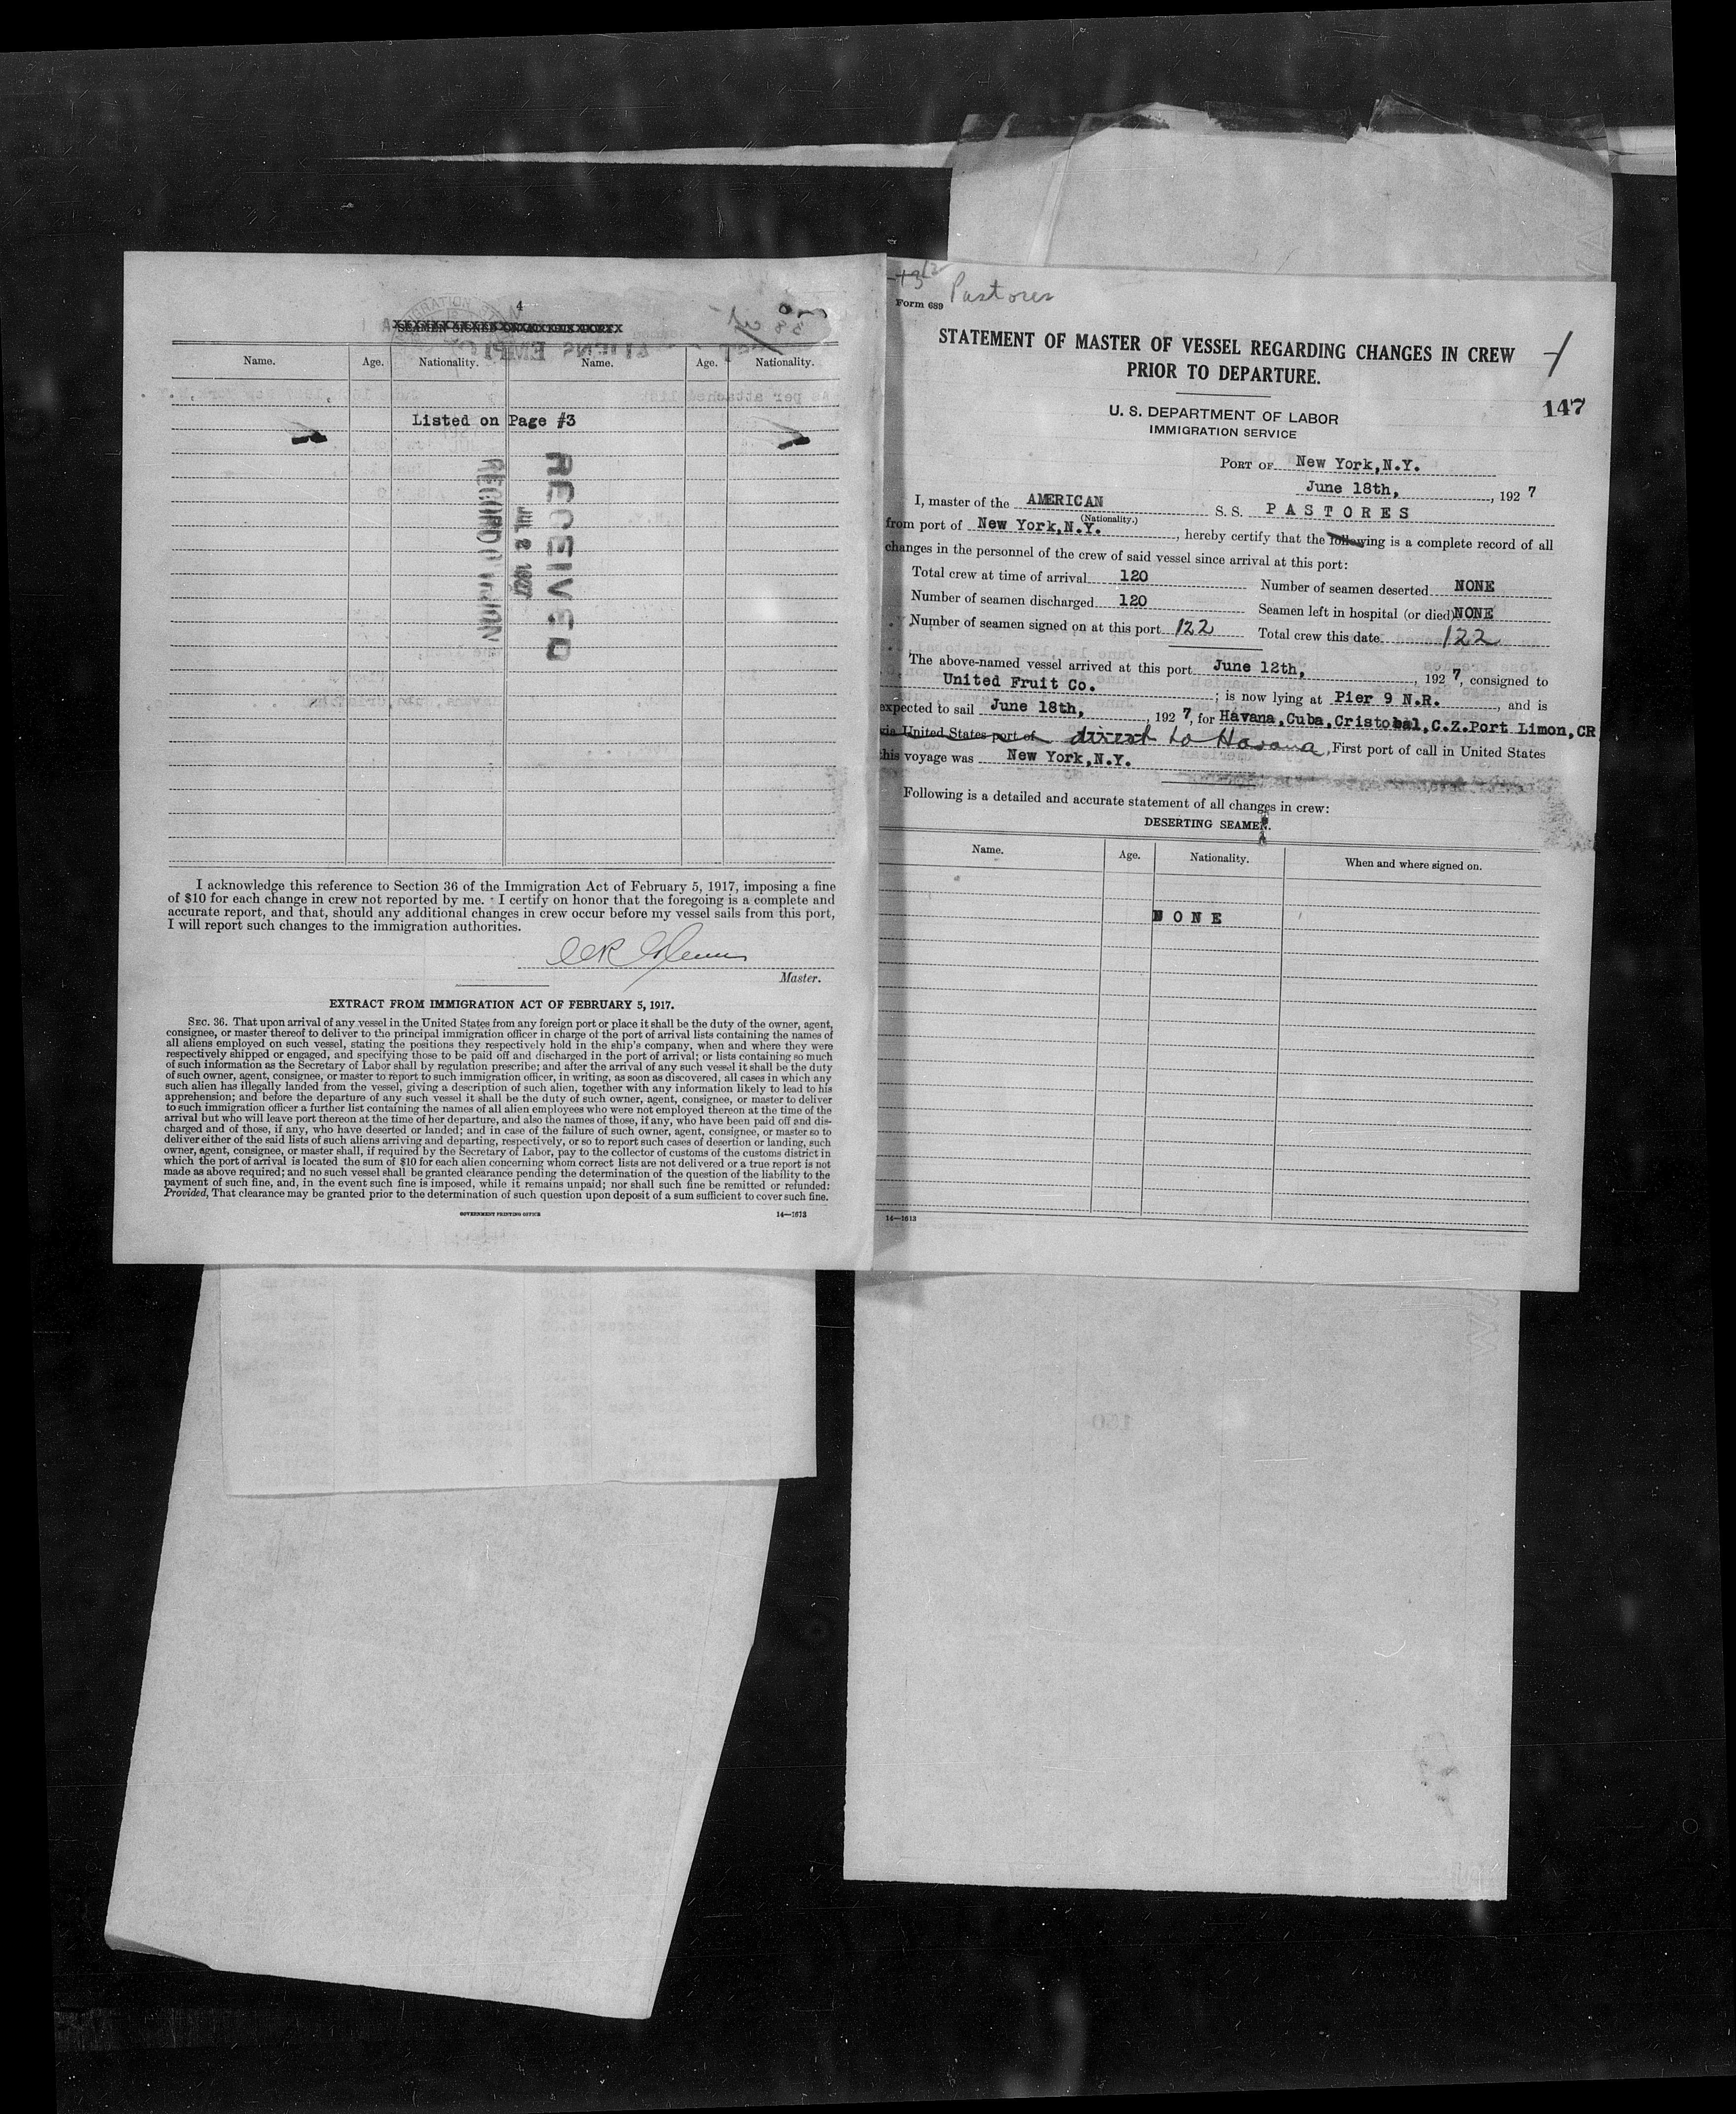 4
SEAMEN SIGNED
Name. Age. Nationality. Name. Age. Nationality.
Listed on Page #3
RECEIVED
JUL 2 1927
RECORD DIVISION
I acknowledge this reference to Section 36 of the Immigration Act of February 5, 1917, imposing a fine
of $10 for each change in crew not reported by me. I certify on honor that the foregoing is a complete and
accurate report, and that, should any additional changes in crew occur before my vessel sails from this port,
I will report such changes to the immigration authorities.
Master.
EXTRACT FROM IMMIGRATION ACT OF FEBRUARY 5, 1917.
SEC. 36. That upon arrival of any vessel in the United States from any foreign port or place it shall be the duty of the owner, agent,
consignee, or master thereof to deliver to the principal immigration officer in charge of the port of arrival lists containing the names of
all aliens employed on such vessel, stating the positions they respectively hold in the ship's company, when and where they were
respectively shipped or engaged, and specifying those to be paid off and discharged in the port of arrival; or lists containing so much
of such information as the Secretary of Labor shall by regulation prescribe; and after the arrival of any such vessel it shall be the duty
of such owner, agent, consignee, or master to report to such immigration officer, in writing, as soon as discovered, all cases in which any
such alien has illegally landed from the vessel, giving a description of such alien, together with any information likely to lead to his
apprehension; and before the departure of any such vessel it shall be the duty of such owner, agent, consignee, or master to deliver
to such immigration officer a further list containing the names of all alien employees who were not employed thereon at the time of the
arrival but who will leave port thereon at the time of her departure, and also the names of those, if any, who have been paid off and dis-
charged and of those, if any, who have deserted or landed; and in case of the failure of such owner, agent, consignee, or master so to
deliver either of the said lists of such aliens arriving and departing, respectively, or so to report such cases of desertion or landing, such
owner, agent, consignee, or master shall, if required by the Secretary of Labor, pay to the collector of customs of the customs district in
which the port of arrival is located the sum of $10 for each alien concerning whom correct lists are not delivered or a true report is not
made as above required; and no such vessel shall be granted clearance pending the determination of the question of the liability to the
payment of such fine, and, in the event such fine is imposed, while it remains unpaid; nor shall such fine be remitted or refunded:
Provided, That clearance may be granted prior to the determination of such question upon deposit of a sum sufficient to cover such fine.
GOVERNMENT PRINTING OFFICE 14—1613
Pastores
Form 689
STATEMENT OF MASTER OF VESSEL REGARDING CHANGES IN CREW
PRIOR TO DEPARTURE.
147
U. S. DEPARTMENT OF LABOR
IMMIGRATION SERVICE
PORT OF New York,N.Y.
June 18th, , 192 7
I, master of the AMERICAN S. S. PASTORES
(Nationality.)
from port of New York,N.Y. , hereby certify that the following is a complete record of all
changes in the personnel of the crew of said vessel since arrival at this port:
Total crew at time of arrival 120 Number of seamen deserted NONE
Number of seamen discharged 120 Seamen left in hospital (or died) NONE
Number of seamen signed on at this port 122 Total crew this date 122
The above-named vessel arrived at this port June 12th, , 192 7, consigned to
United Fruit Co. ; is now lying at Pier 9 N.R. , and is
expected to sail June 18th, , 192 7, for Havana,Cuba,Cristobal,C.Z.Port Limon,CR
via United States port of direct to Havana. First port of call in United States
this voyage was New York,N.Y.
Following is a detailed and accurate statement of all changes in crew:
DESERTING SEAMEN.
Name. Age. Nationality. When and where signed on.
NONE
14—1613
150